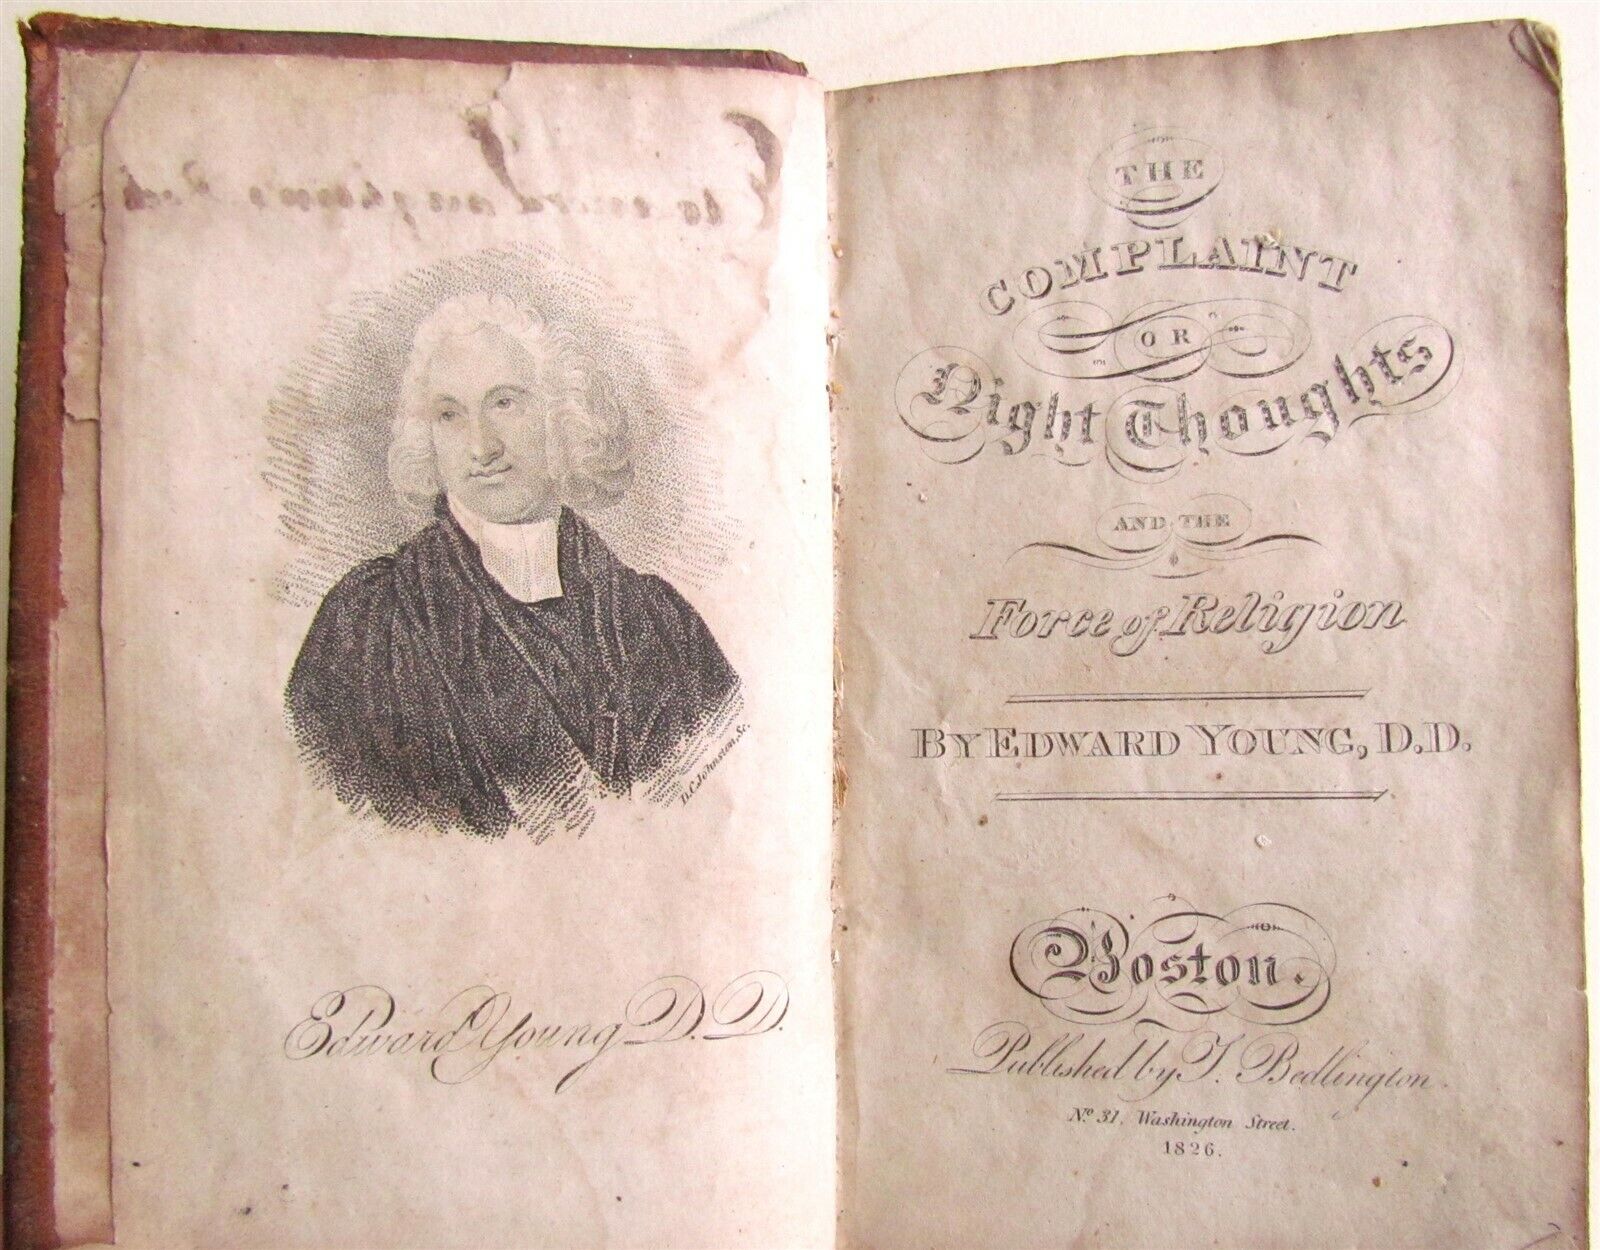 D.C. Johnston, Sc.
Edward Young D.D.
THE
COMPLAINT
OR
Night Thoughts
AND THE
Force of Religion
BY EDWARD YOUNG, D.D.
Boston.
Published by T. Bedlington.
No. 31, Washington Street.
1826.